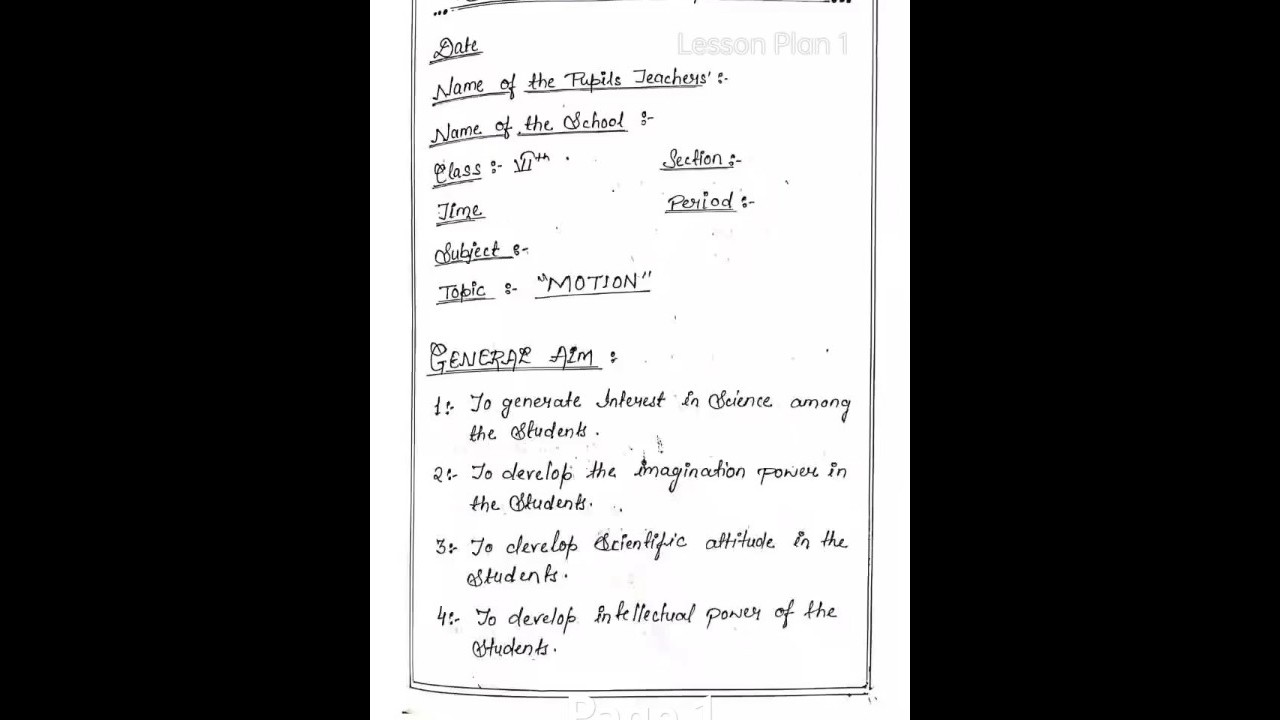 Date
Lesson Plan 1
Name of the Pupils Teachers' :-
Name of the School :-
Class :- VIth .
Section :-
Time
Period :-
Subject :-
Topic :- "MOTION"
GENERAL AIM :
1:- To generate Interest in Science among
the Students.
2:- To develop the imagination power in
the Students.
3:- To develop Scientific attitude in the
Students.
4:- To develop intellectual power of the
Students.
Page 1